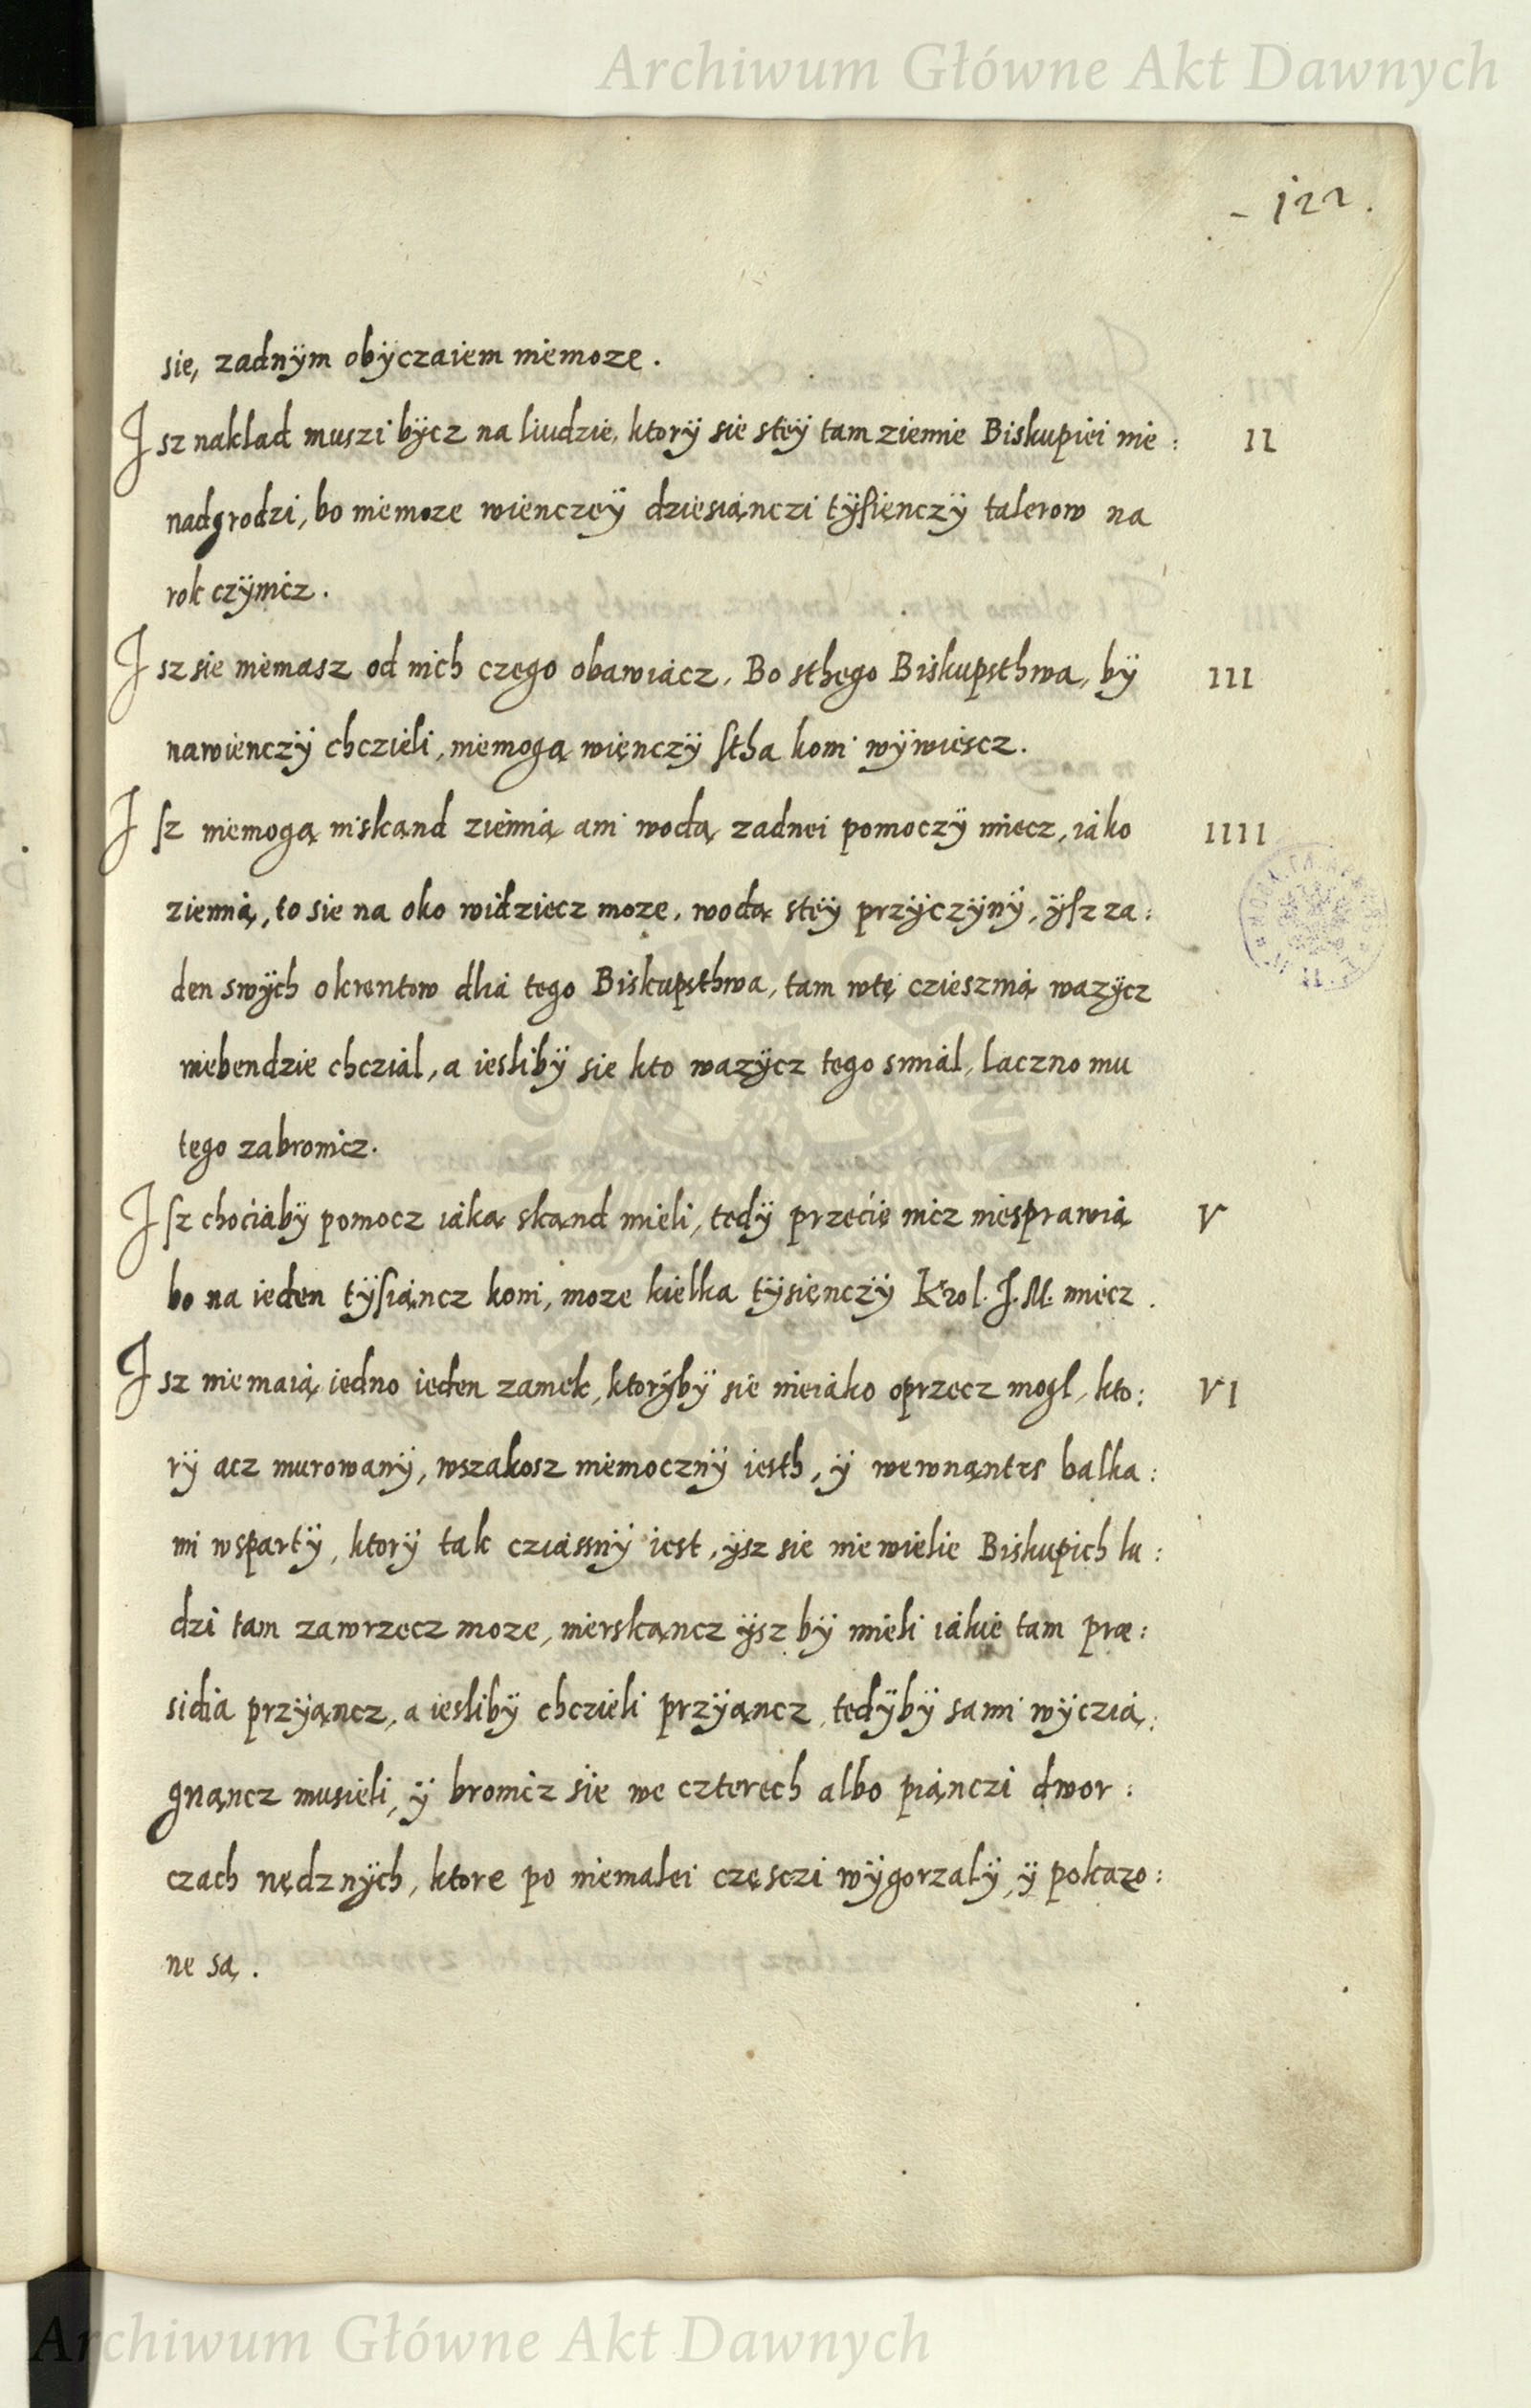 Archiwum Główne Akt Dawnych
- 122.
sie, zadnÿm obÿczaiem niemoze.
Isz naklad muszi bÿcz na liudzie, ktorÿ sie stëÿ tam ziemie Biskupiei nie: II
nadgrodzi, bo niemoze wienczeÿ dziesiąnczi tÿſięnczÿ talerow na
rok czÿnicz.
Isz sie niemasz od nich czego obawiacz, Bo sthego Biskupsthwa, bÿ III
nawienczÿ chczieli, niemogą więnczÿ ſtha koni wÿwiescz.
Iſz niemogą niskąnd ziemią ani wodą zadnei pomoczÿ miecz, iako IIII
ziemią, to sie na oko widziecz moze, wodą stëÿ przÿczÿnÿ, ÿſz za:
den swÿch okrentow dlia tego Biskupsthwa, tam wtę cziesznią wazÿcz
niebendzie chczial, a iesliby sie kto wazÿcz tego smial, laczno mu
tego zabronicz.
Iſz chociabÿ pomocz iaką skąnd mieli, tedÿ przecię nicz niesprawią V
bo na ieden tÿſiąncz koni, moze kielka tÿsięnczÿ Krol. J. M. miecz.
Isz nie maią iedno ieden zamek, ktorÿbÿ sie nieiako oprzecz mogl, kto: VI
rÿ acz murowanÿ, wszakosz niemocznÿ iesth, ÿ wewnąntrs balka:
mi wspartÿ, ktorÿ tak cziassnÿ iest, ÿsz sie niewielie Biskupich lu:
dzi tam zawrzecz moze, nierskąncz ÿsz bÿ mieli iakie tam præ:
sidia przÿąncz, a iesliby chczieli przÿąncz, tedÿbÿ sami wÿczią:
gnąncz musieli, ÿ bronicz sie we czterech albo piąnczi dwor:
czach nędznÿch, ktore po niemalei częsczi wÿgorzalÿ, ÿ pokazo:
ne są.
Archiwum Główne Akt Dawnych